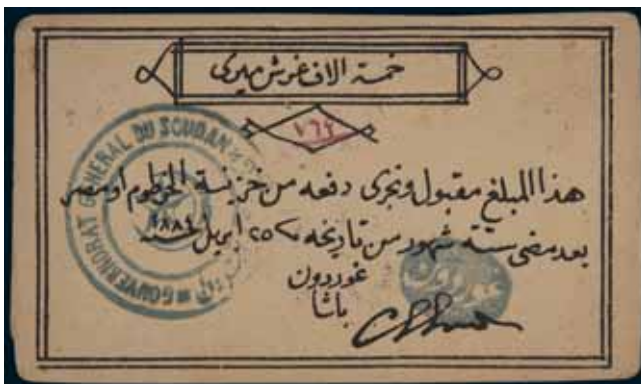 خمسة الاف غرش ميرى
١٦٢
هذا المبلغ مقبول ونجرى دفعه من خزينة الخرطوم او مصر
بعد مضى ستة شهور من تاريخه ٢٥ ابريل سنة ١٨٨٤
غوردون
باشا
GOUVERNORAT GENERAL DU SOUDAN